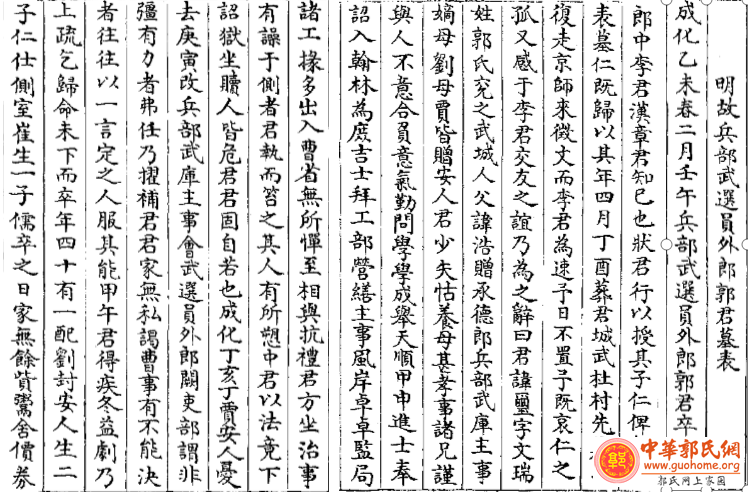 明故兵部武選員外郎郭君墓表
成化乙未春二月壬午兵部武選員外郎郭君卒
郎中李君漢章君知已也狀君行以授其子仁俾
表墓仁既歸以其年四月丁酉葬君城武杜村先
復走京師來徵文而李君為速予日不置予既哀仁之
孤又感于李君交友之誼乃為之辭曰君諱璽字文瑞
姓郭氏兖之武城人父諱浩贈承德郎兵部武庫主事
嫡母劉母賈皆贈安人君少失怙養母甚孝事諸兄謹
與人不意合負意氣勤問學學成舉天順甲申進士奉
詔入翰林為庶吉士拜工部營繕主事風岸卓卓監局
諸工掾多出入曹省無所憚至相與抗禮君方坐治事
有譟于側者君執而笞之其人有所愬中君以法竟下
詔獄坐贖人皆危君君固自若也成化丁亥丁賈安人憂
去庚寅改兵部武庫主事會武選員外郎闕吏部謂非
彊有力者弗任乃擢補君君家無私謁曹事有不能決
者往往以一言定之人服其能甲午君得疾冬益劇乃
上疏乞歸命未下而卒年四十有一配劉封安人生二
子仁仕側室崔生一子儒卒之日家無餘貲鬻舍價券
中華郭氏網
www.guohome.org
郭氏网上家园